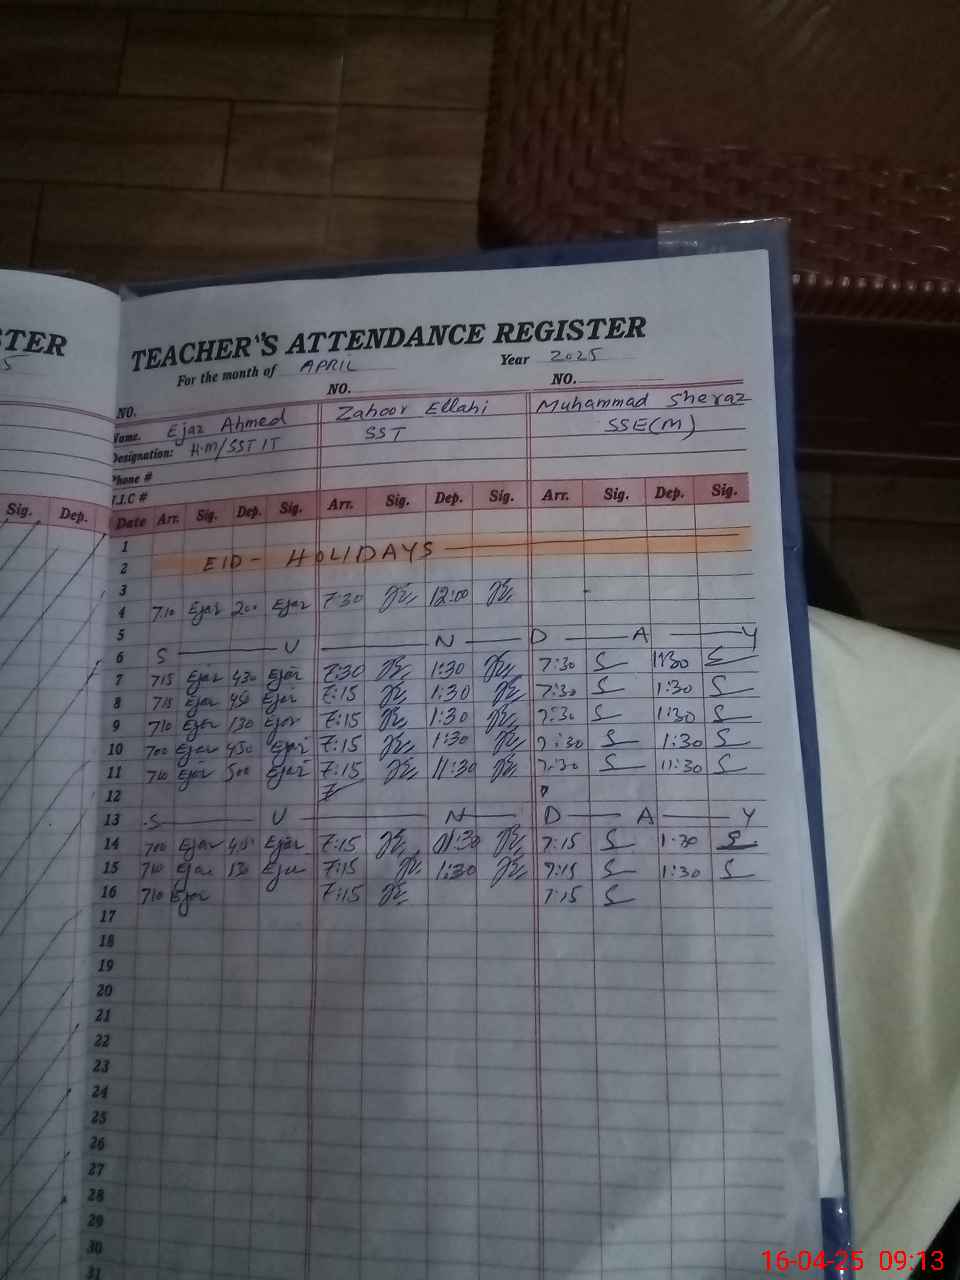 STER
5
TEACHER'S ATTENDANCE REGISTER
For the month of APRIL Year 2025
NO. NO. NO.
Name. Ejaz Ahmed Zahoor Ellahi Muhammad Sheraz
Designation: H.M/SST IT SST SSE(M)
Phone #
Sig. Dep. Date Arr. Sig. Dep. Sig. Arr. Sig. Dep. Sig. Arr. Sig. Dep. Sig.
1
2 EID - HOLIDAYS
3
4 7:10 Ejaz 200 Ejaz 7:30 12:00
5
6 S U N D A Y
7 715 Ejaz 430 Ejaz 7:30 1:30 7:30 S 1:30 S
8 715 Ejaz Ejaz 7:15 1:30 7:30 S 1:30 S
9 710 Ejaz 130 Ejaz 7:15 1:30 7:30 S 1:30 S
10 700 Ejaz 430 Ejaz 7:15 1:30 7:30 S 1:30 S
11 710 Ejaz 500 Ejaz 7:15 11:30 7:30 S 11:30 S
12
13 S U N D A Y
14 700 Ejaz Ejaz 7:15 7:15 S 1:30 S
15 710 Ejaz 130 Ejaz 7:15 1:30 7:15 S 1:30 S
16 710 Ejaz 7:15 7:15 S
17
18
19
20
21
22
23
24
25
26
27
28
29
30
31
16-04-25 09:13